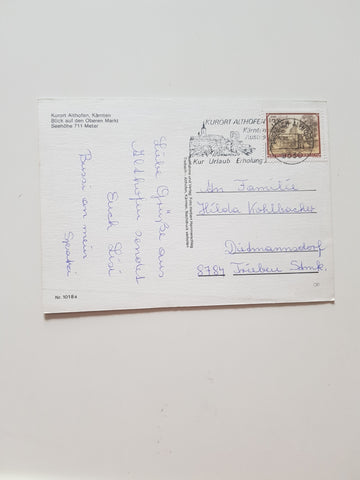 Kurort Althofen, Kärnten
Blick auf den Oberen Markt
Seehöhe 711 Meter
Liebe Grüße aus
Althofen sendet
Euch Lisi
Bussi an mein
KURORT ALTHOFEN
Kärnten
Kur Urlaub Erholung
An Familie
Hilda Kohlbacher
Dietmannsdorf
8784 Trieben Stmk.
Nr. 1018a